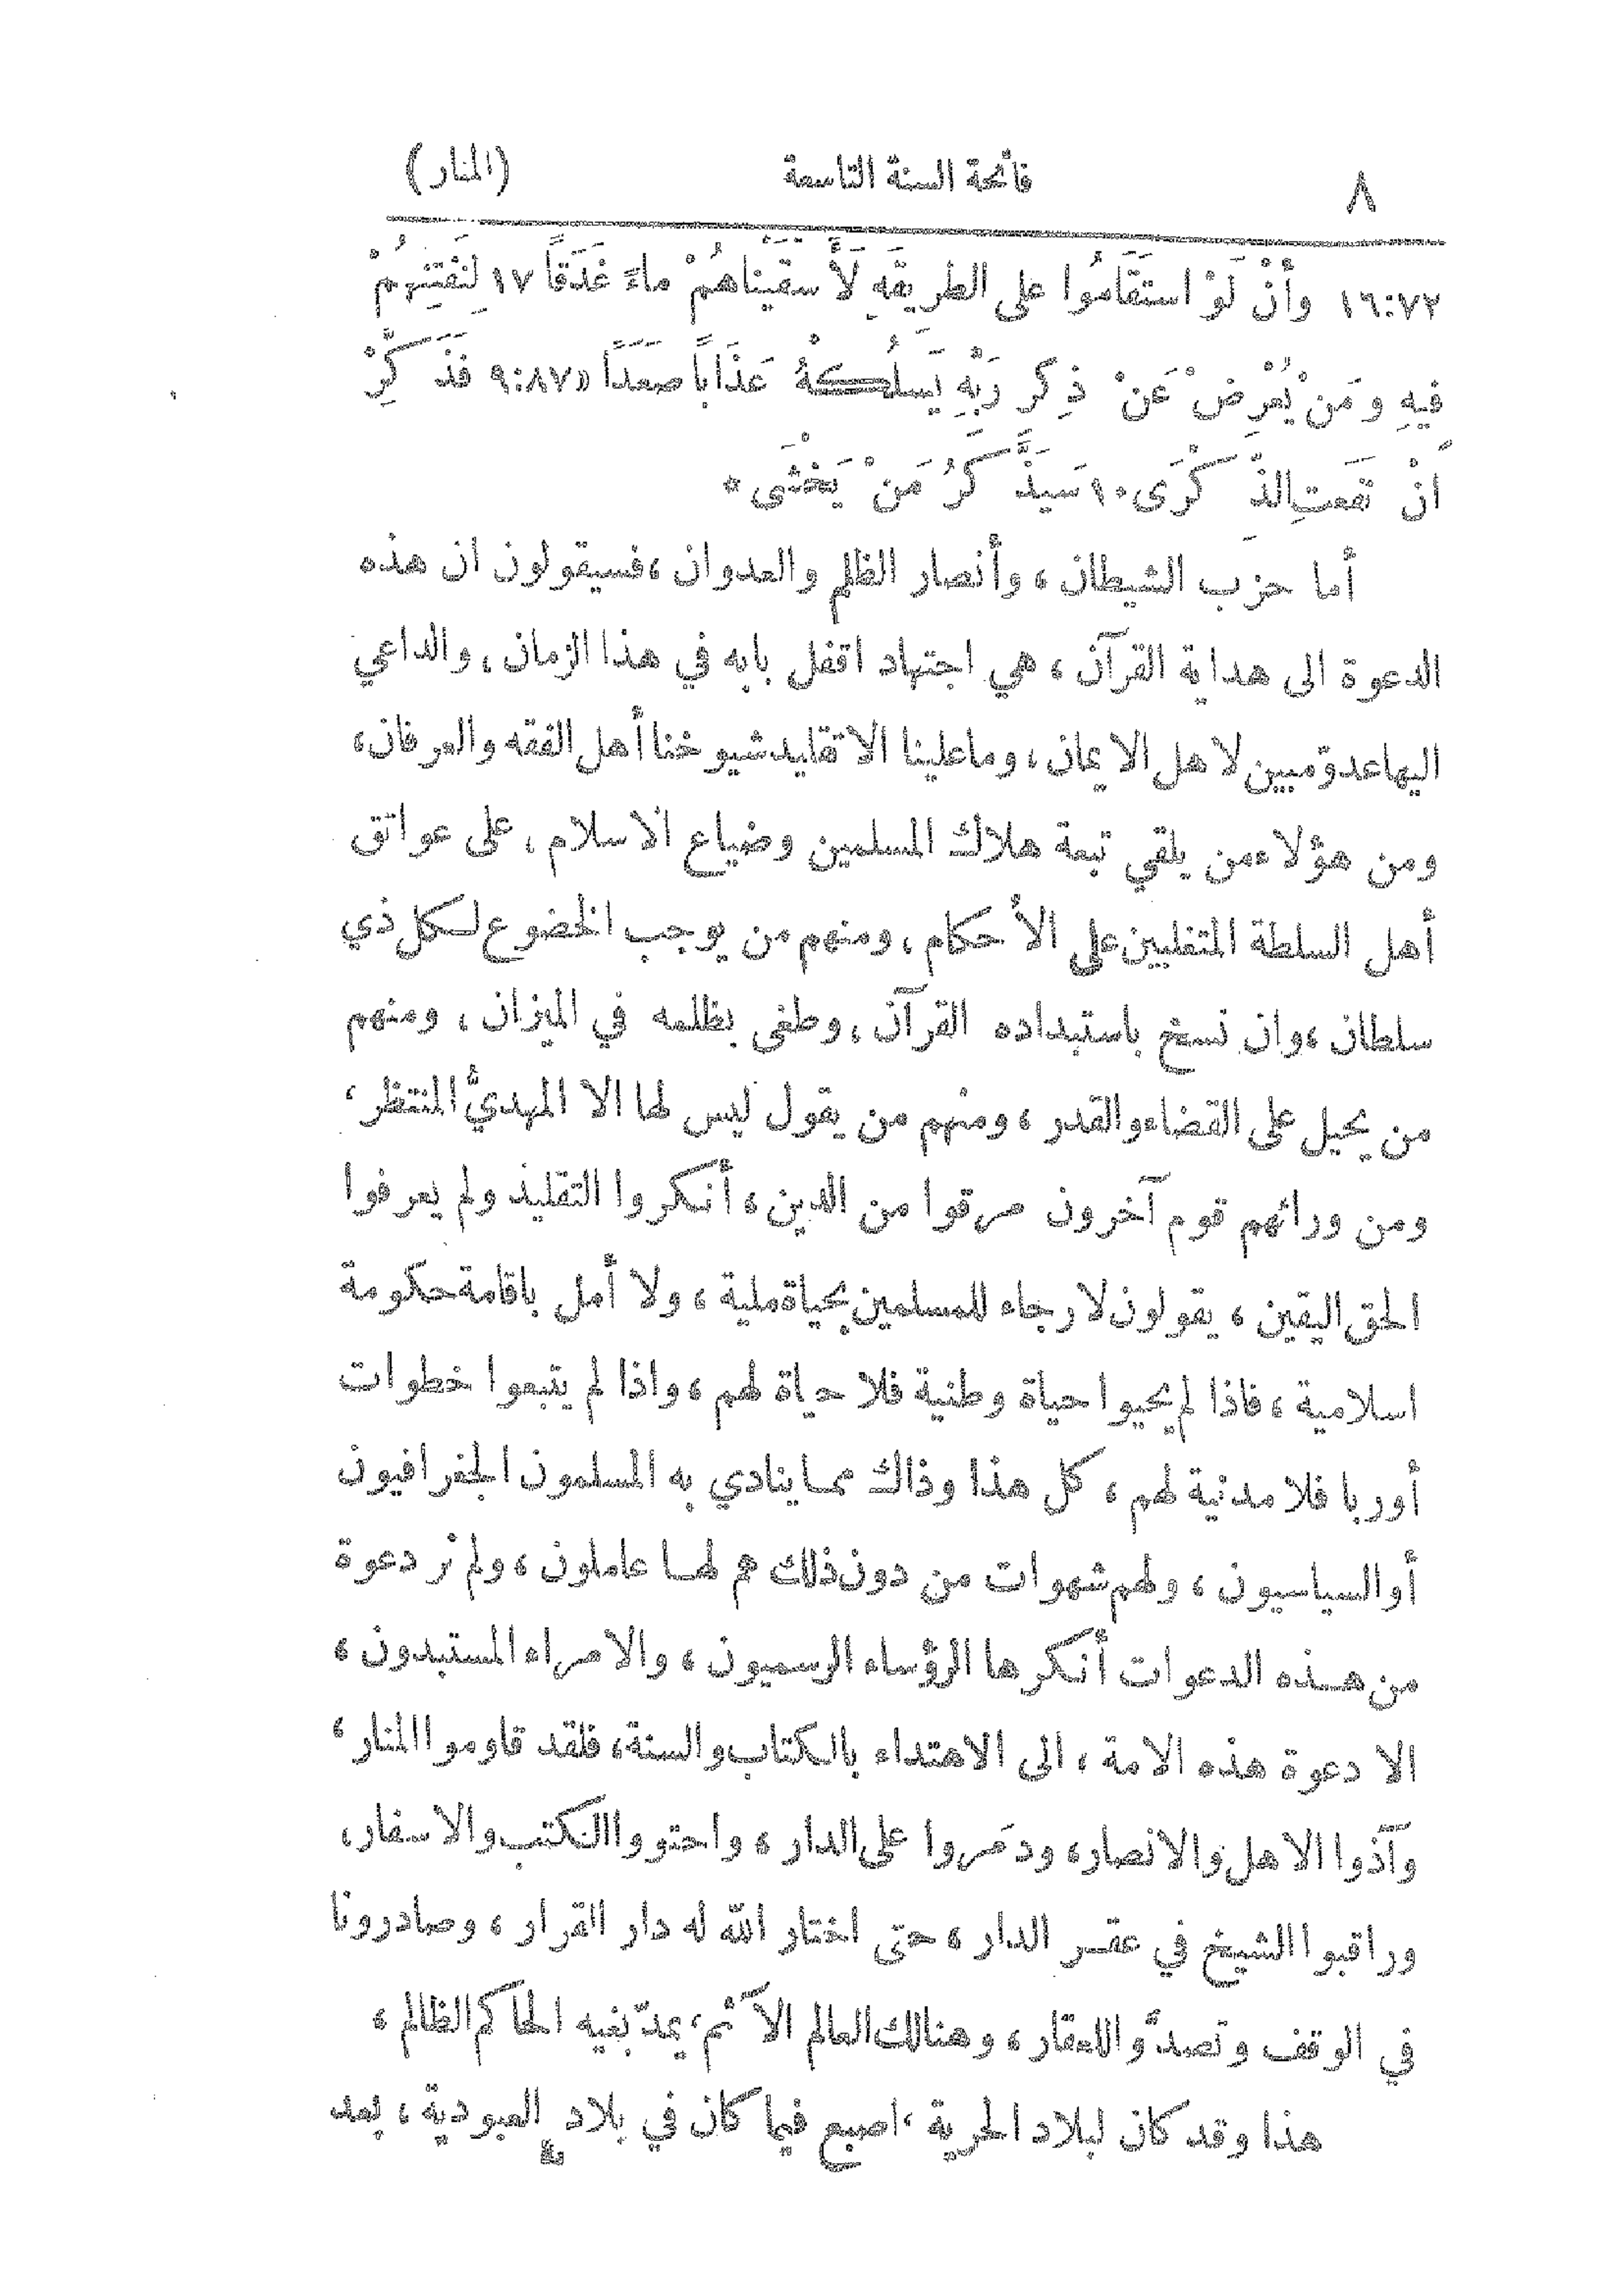 ٨ فاتحة السنة التاسعة (المنار)
١٦:٧٢ وأَنْ لَوْ اسْتَقَامُوا على الطريقَةِ لَأَسْقَيْنَاهُمْ ماءً غَدَقًا ١٧ لِنَفْتِنَهُمْ
فِيهِ وَمَنْ يُعْرِضْ عَنْ ذِكر رَبِّهِ يَسْلُكْهُ عَذَابًا صَعَدًا «٩:٨٧ فَذَكِّرْ
إِنْ نَفَعَتِ الذِّكْرَى ١٠ سَيَذَّكَّرُ مَنْ يَخْشَى *
أما حزب الشيطان، وأنصار الظلم والعدوان، فسيقولون ان هذه
الدعوة الى هداية القرآن، هي اجتهاد اقفل بابه في هذا الزمان، والداعي
اليها عدوّ مبين لاهل الايمان، وما علينا الا تقليد شيوخنا أهل الفقه والعرفان،
ومن هؤلاء من يلقي تبعة هلاك المسلمين وضياع الاسلام، على عواتق
أهل السلطة المتغلبين على الأحكام، ومنهم من يوجب الخضوع لكل ذي
سلطان، وان نسخ باستبداده القرآن، وطغى بظلمه في الميزان، ومنهم
من يحيل على القضاء والقدر، ومنهم من يقول ليس لها الا المهديُّ المنتظر،
ومن ورائهم قوم آخرون مرقوا من الدين، أنكروا التقليد ولم يعرفوا
الحق اليقين، يقولون لا رجاء للمسلمين بحياة ملية، ولا أمل باقامة حكومة
اسلامية، فاذا لم يحيوا حياة وطنية فلا حياة لهم، واذا لم يتبعوا خطوات
أوربا فلا مدنية لهم، كل هذا وذاك مما ينادي به المسلمون الجغرافيون
أو السياسيون، ولهم شهوات من دون ذلك هم لها عاملون، ولم نر دعوة
من هذه الدعوات أنكرها الرؤساء الرسميون، والامراء المستبدون،
الا دعوة هذه الامة، الى الاهتداء بالكتاب والسنة، فلقد قاوموا المنار،
وآذوا الاهل والانصار، ودمروا على الدار، واحتووا الكتب والاسفار،
وراقبوا الشيخ في عقر الدار، حتى اختار الله له دار القرار، وصادرونا
في الوقف وتصدَّوا للعقار، وهنالك العالم الآثم، يمدّ بغيه الحاكم الظالم،
هذا وقد كان لبلاد الحرية، اصبع فيما كان في بلاد العبودية، بعد